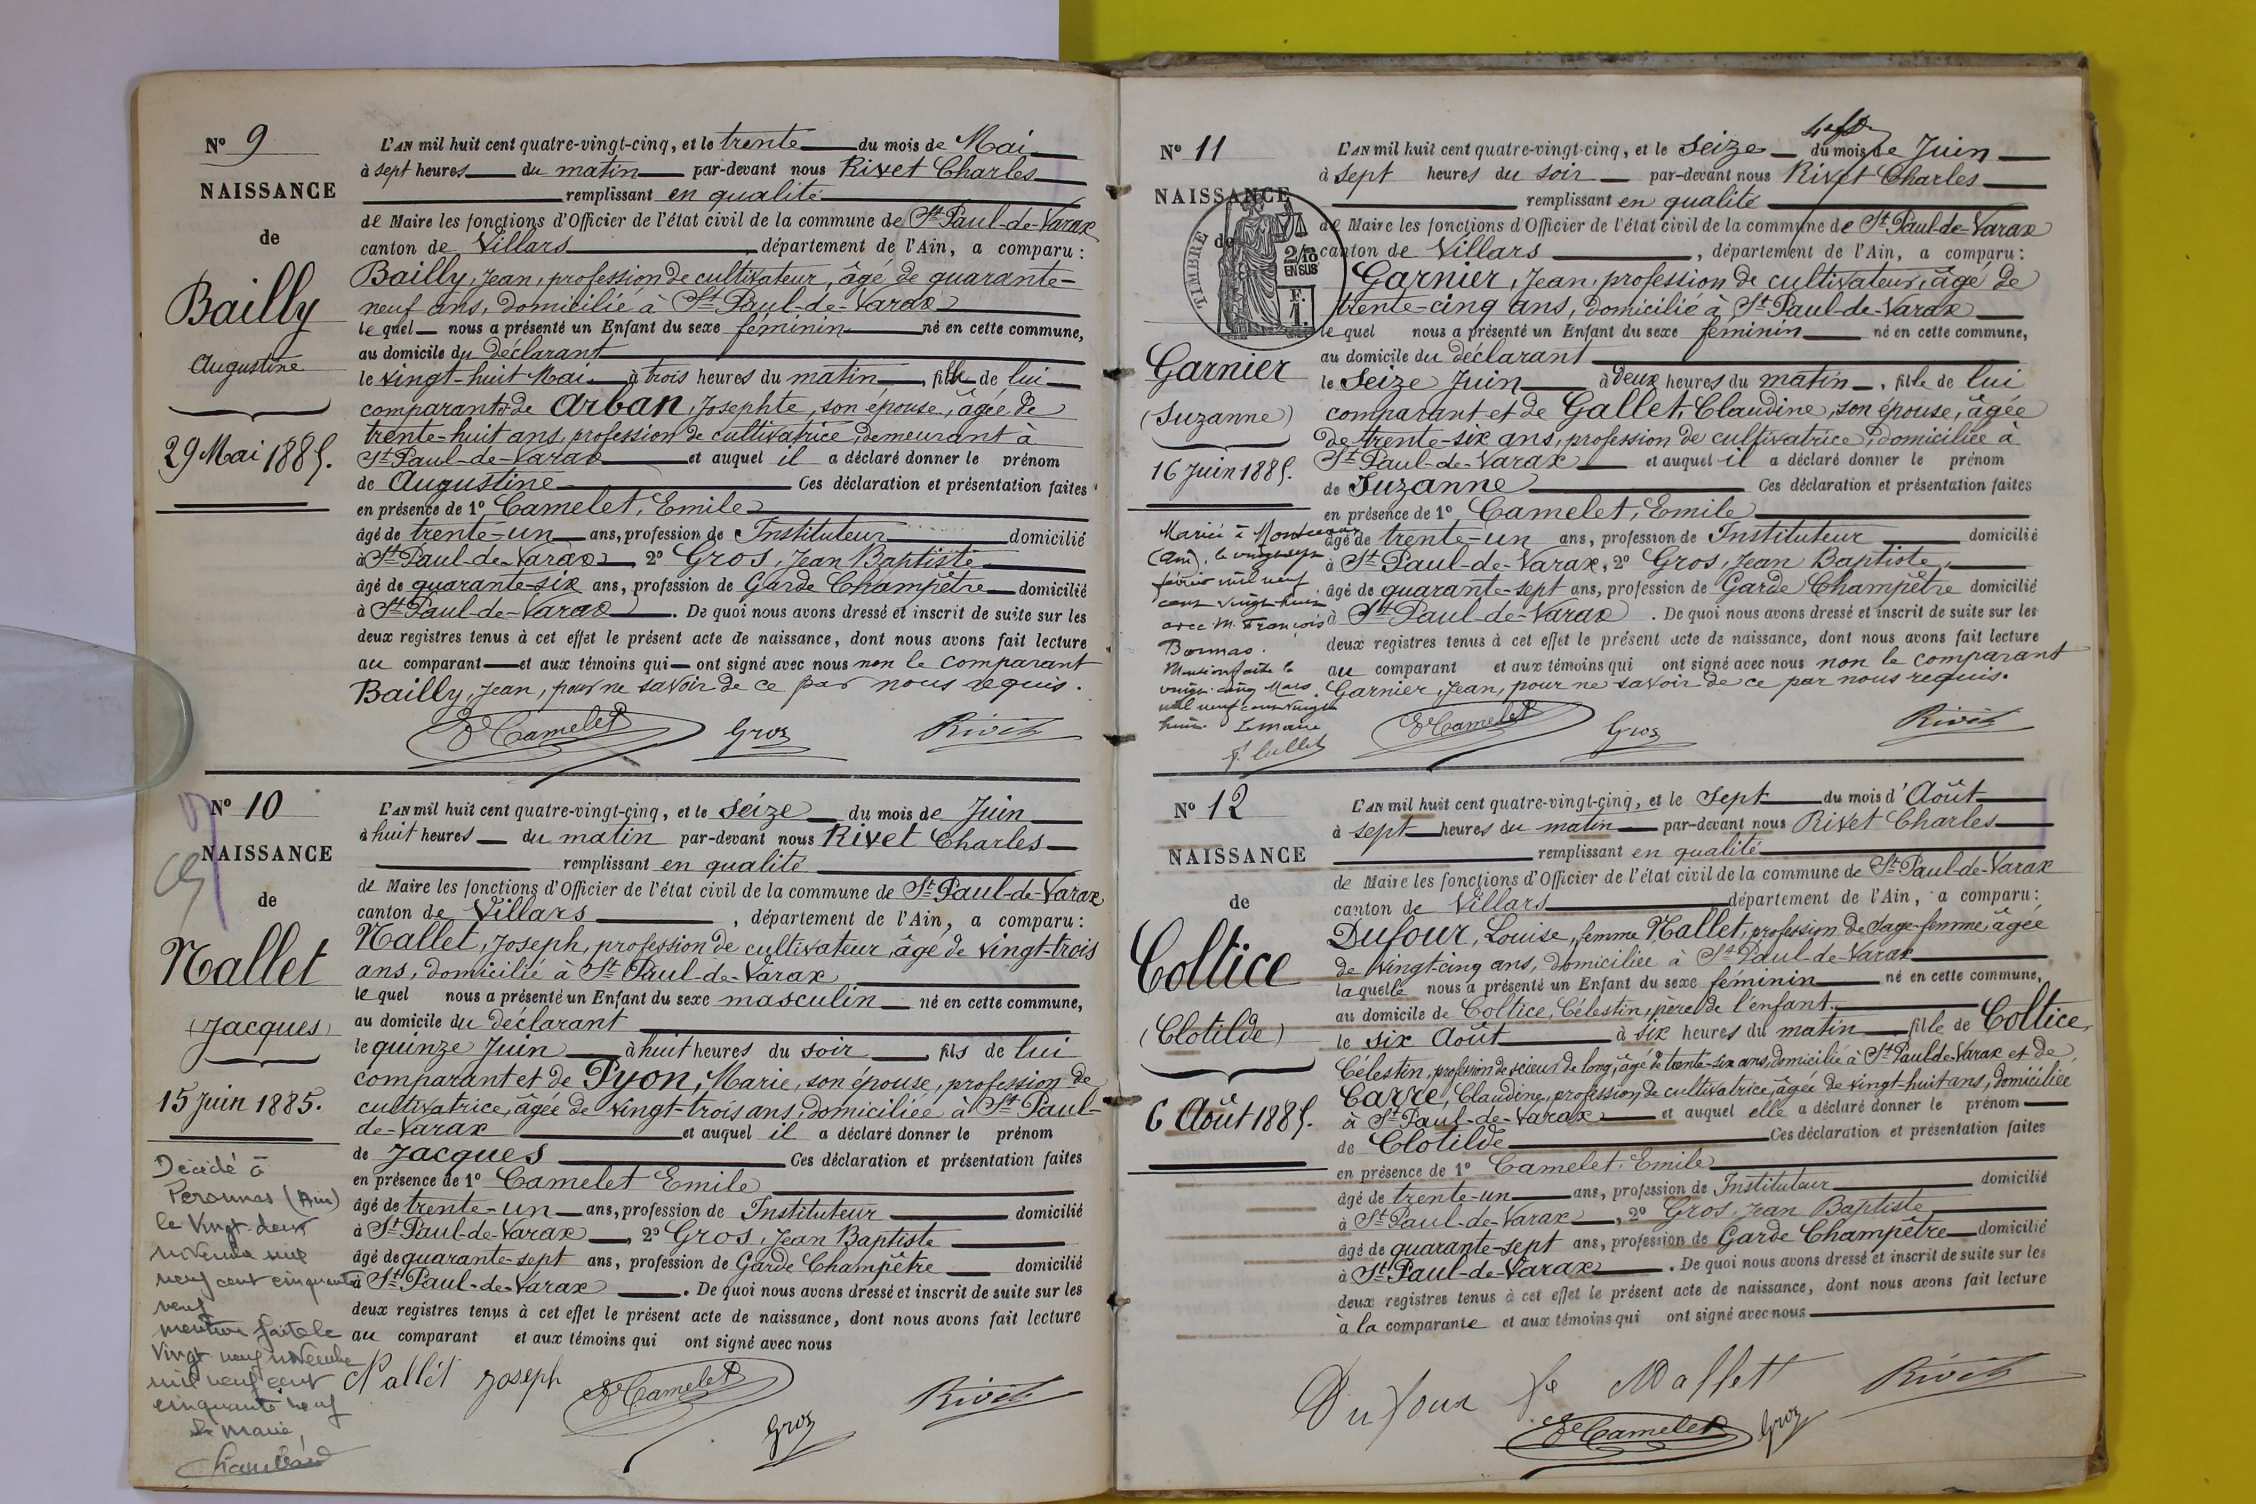 N° 9
NAISSANCE
de
Bailly
Augustine
29 Mai 1885.
L'AN mil huit cent quatre-vingt-cinq, et le trente du mois de Mai
à sept heures du matin par-devant nous Rivet Charles
remplissant en qualité
de Maire les fonctions d'Officier de l'état civil de la commune de St Paul-de-Varax
canton de Villars, département de l'Ain, a comparu :
Bailly, Jean, profession de cultivateur, âgé de quarante-
neuf ans, domicilié à St Paul-de-Varax
le quel nous a présenté un Enfant du sexe féminin né en cette commune,
au domicile du déclarant
le vingt-huit Mai à trois heures du matin, fille de lui
comparant & de Arban, Josephte, son épouse, âgée de
trente-huit ans, profession de cultivatrice, demeurant à
St Paul-de-Varax et auquel il a déclaré donner le prénom
de Augustine Ces déclaration et présentation faites
en présence de 1° Camelet, Emile
âgé de trente-un ans, profession de Instituteur domicilié
à St Paul-de-Varax, 2° Gros, Jean Baptiste
âgé de quarante-six ans, profession de Garde Champêtre domicilié
à St Paul-de-Varax. De quoi nous avons dressé et inscrit de suite sur les
deux registres tenus à cet effet le présent acte de naissance, dont nous avons fait lecture
au comparant et aux témoins qui ont signé avec nous non le comparant
Bailly, Jean, pour ne savoir de ce par nous requis.
E Camelet Gros Rivet
N° 10
NAISSANCE
de
Nallet
(Jacques)
15 Juin 1885.
Décédé à
Peronnas (Ain)
le Vingt-deux
novembre mil
neuf cent cinquante
neuf
mention faite le
Vingt neuf novembre
mil neuf cent
cinquante neuf
Le Maire,
L'AN mil huit cent quatre-vingt-cinq, et le seize du mois de Juin
à huit heures du matin par-devant nous Rivet Charles
remplissant en qualité
de Maire les fonctions d'Officier de l'état civil de la commune de St Paul-de-Varax
canton de Villars, département de l'Ain, a comparu :
Nallet, Joseph, profession de cultivateur, âgé de vingt-trois
ans, domicilié à St Paul-de-Varax
le quel nous a présenté un Enfant du sexe masculin né en cette commune,
au domicile du déclarant
le quinze Juin à huit heures du soir, fils de lui
comparant et de Pyon, Marie, son épouse, profession de
cultivatrice, âgée de vingt-trois ans, domiciliée à St Paul-
de-Varax et auquel il a déclaré donner le prénom
de Jacques Ces déclaration et présentation faites
en présence de 1° Camelet Emile
âgé de trente-un ans, profession de Instituteur domicilié
à St Paul-de-Varax, 2° Gros, Jean Baptiste
âgé de quarante-sept ans, profession de Garde Champêtre domicilié
à St Paul-de-Varax. De quoi nous avons dressé et inscrit de suite sur les
deux registres tenus à cet effet le présent acte de naissance, dont nous avons fait lecture
au comparant et aux témoins qui ont signé avec nous
Nallet Joseph E Camelet Gros Rivet
N° 11
NAISSANCE
de
TIMBRE
2/10
EN SUS
F.
1.
Garnier
(Suzanne)
16 Juin 1885.
Mariée à
(Ain), le vingt sept
février mil neuf
cent vingt-huit
avec M. François
Mention faite le
vingt-cinq Mars
mil neuf cent vingt
huit. Le Maire
L'AN mil huit cent quatre-vingt-cinq, et le seize du mois de Juin
à sept heures du soir par-devant nous Rivet Charles
remplissant en qualité
de Maire les fonctions d'Officier de l'état civil de la commune de St Paul-de-Varax
canton de Villars, département de l'Ain, a comparu :
Garnier, Jean, profession de cultivateur, âgé de
trente-cinq ans, domicilié à St Paul-de-Varax
le quel nous a présenté un Enfant du sexe féminin né en cette commune,
au domicile du déclarant
le seize Juin à deux heures du matin, fille de lui
comparant et de Gallet, Claudine, son épouse, âgée
de trente-six ans, profession de cultivatrice, domiciliée à
St Paul-de-Varax et auquel il a déclaré donner le prénom
de Suzanne Ces déclaration et présentation faites
en présence de 1° Camelet, Emile
âgé de trente-un ans, profession de Instituteur domicilié
à St Paul-de-Varax, 2° Gros, Jean Baptiste,
âgé de quarante-sept ans, profession de Garde Champêtre domicilié
à St Paul-de-Varax. De quoi nous avons dressé et inscrit de suite sur les
deux registres tenus à cet effet le présent acte de naissance, dont nous avons fait lecture
au comparant et aux témoins qui ont signé avec nous non le comparant
Garnier, Jean, pour ne savoir de ce par nous requis.
E Camelet Gros Rivet
N° 12
NAISSANCE
de
Coltice
(Clotilde)
6 Août 1885.
L'AN mil huit cent quatre-vingt-cinq, et le sept du mois d'Août
à sept heures du matin par-devant nous Rivet Charles
remplissant en qualité
de Maire les fonctions d'Officier de l'état civil de la commune de St Paul-de-Varax
canton de Villars département de l'Ain, a comparu :
Dufour, Louise, femme Nallet, profession de Sage-femme, âgée
de vingt-cinq ans, domiciliée à St Paul-de-Varax
laquelle nous a présenté un Enfant du sexe féminin né en cette commune,
au domicile de Coltice, Célestin, père de l'enfant
le six Août à six heures du matin, fille de Coltice,
Célestin, profession de scieur de long, âgé de trente-six ans, domicilié à St Paul-de-Varax et de
Carre, Claudine, profession de cultivatrice, âgée de vingt-huit ans, domiciliée
à St Paul-de-Varax et auquel elle a déclaré donner le prénom
de Clotilde Ces déclaration et présentation faites
en présence de 1° Camelet, Emile
âgé de trente-un ans, profession de Instituteur domicilié
à St Paul-de-Varax, 2° Gros, Jean Baptiste
âgé de quarante-sept ans, profession de Garde Champêtre domicilié
à St Paul-de-Varax. De quoi nous avons dressé et inscrit de suite sur les
deux registres tenus à cet effet le présent acte de naissance, dont nous avons fait lecture
à la comparante et aux témoins qui ont signé avec nous
Dufour fe Nallet Rivet
E Camelet Gros